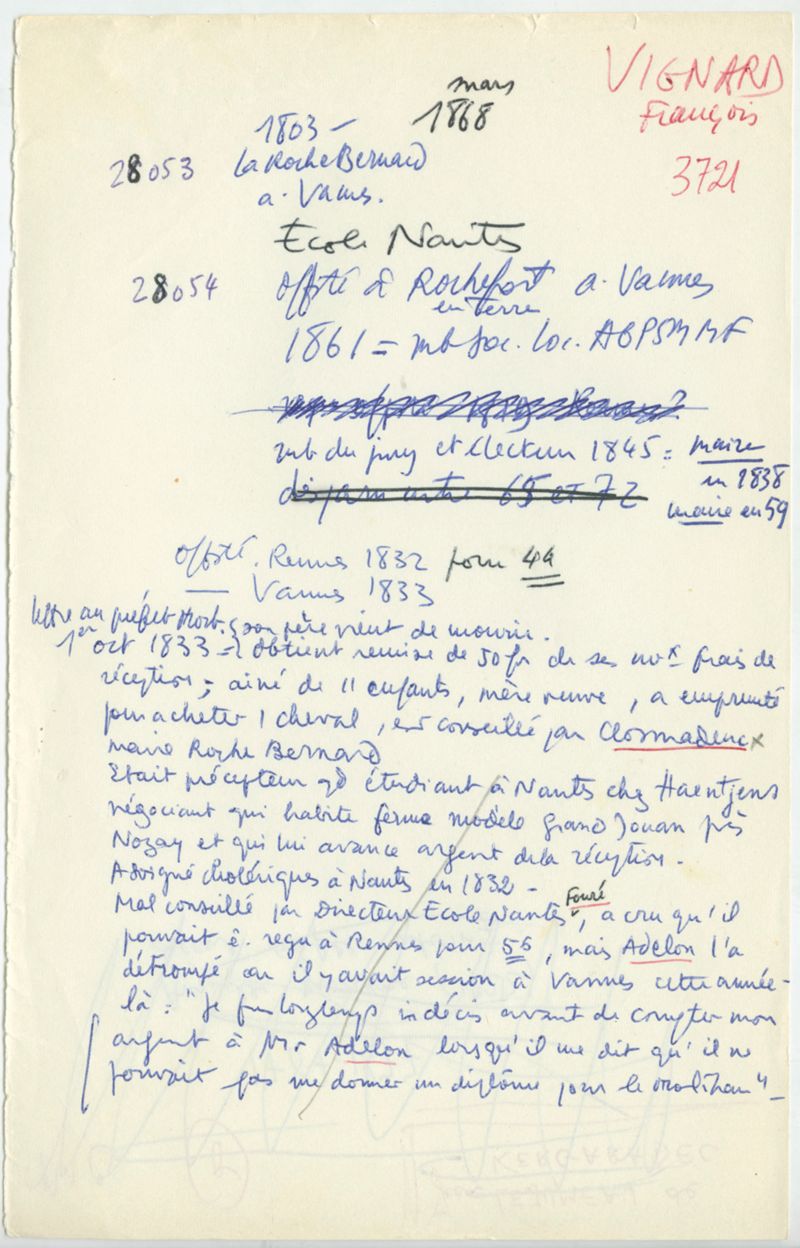 VIGNARD
François
3721
mars
1803 - 1868
28053 La Roche Bernard
a. Vannes.
Ecole Nantes
28054 offté à Rochefort a. Vannes
en Terre
1861 = mb soc. loc. ABPSMMF
mb du jury et électeur 1845 = maire
en 1838
disparu entre 65 et 72
maire en 59
offté. Rennes 1832 pour 44
— Vannes 1833
lettre au préfet Morb. son père vient de mourir.
1er oct 1833 = obtient remise de 50 fr de ses nvx frais de
réception ; ainé de 11 enfants, mère veuve, a emprunté
pour acheter 1 cheval, est conseillé par Closmadeuc x
maire Roche Bernard
Etait précepteur qd étudiant à Nantes chez Haentjens
négociant qui habite ferme modèle Grand Jouan près
Nozay et qui lui avance argent de la réception.
A soigné cholériques à Nantes en 1832 -
Mal conseillé par Directeur Ecole Nantes, Fouré, a cru qu'il
pouvait ê. reçu à Rennes pour 56, mais Adelon l'a
détrompé car il y avait session à Vannes cette année-
là : "Je fus longtemps indécis avant de compter mon
argent à Mr Adelon lorsqu'il me dit qu'il ne
pouvait pas me donner un diplôme pour le Morbihan" -
KERGARADEC